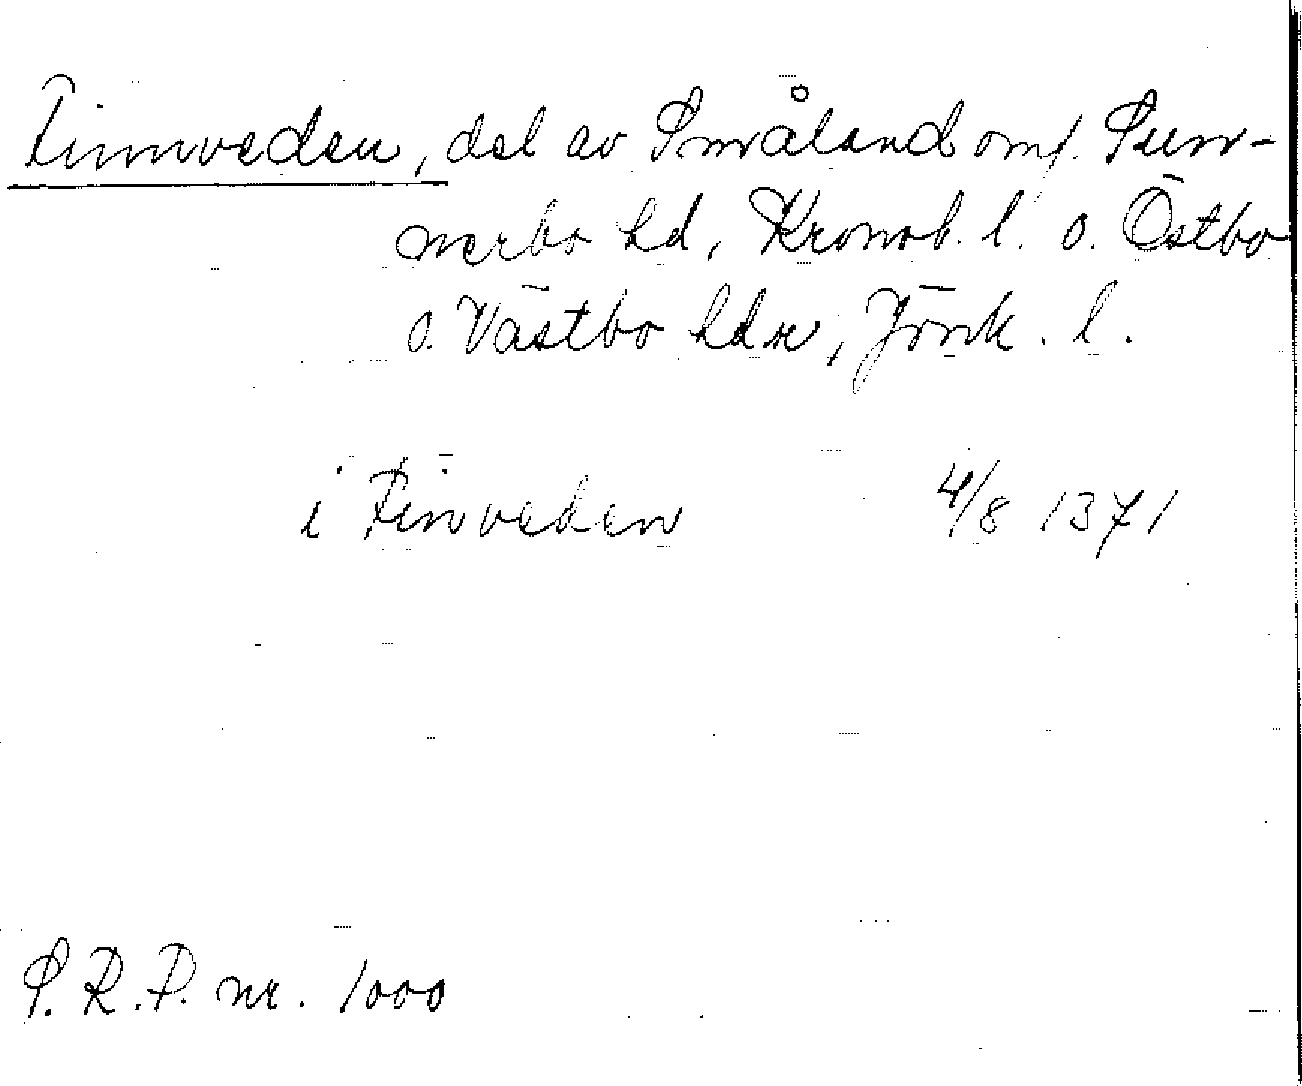 Finnveden, del av Småland omf. Sun-
nerbo hd, Kronob. l. o. Östbo
o. Västbo hdr, Jönk. l.
i Finveden 4/8 1371
S.R.P. nr. 1000